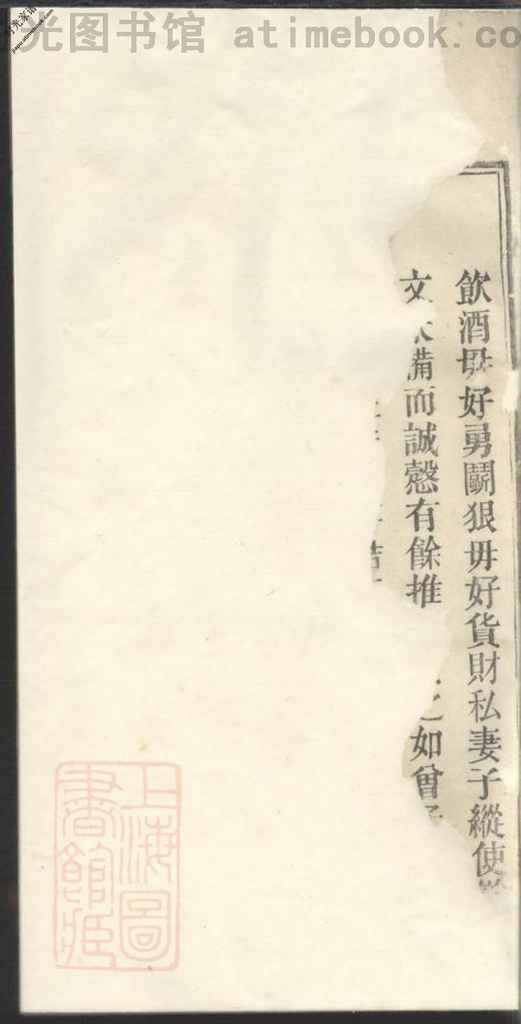 光图书馆 atimebook.co
飲酒毋好勇鬭狠毋好貨財私妻子縱使
文 備而誠慤有餘推 之如曾子
上海圖書館藏